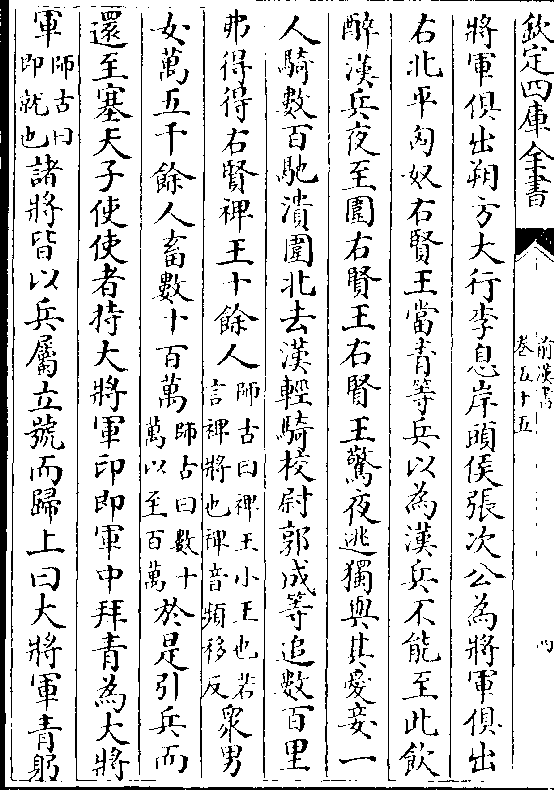 欽定四庫全書
前漢書
卷五十五
四
將軍俱出朔方大行李息岸頭侯張次公為將軍俱出
右北平匈奴右賢王當青等兵以為漢兵不能至此飲
醉漢兵夜至圍右賢王右賢王驚夜逃獨與其愛妾一
人騎數百馳潰圍北去漢輕騎校尉郭成等追數百里
弗得得右賢裨王十餘人師古曰裨王小王也若信裨將也裨音頻移反衆男
女萬五千餘人畜數十百萬師古曰數十萬以至百萬於是引兵而
還至塞天子使使者持大將軍印即軍中拜青為大將
軍師古曰即就也諸將皆以兵屬立號而歸上曰大將軍青躬